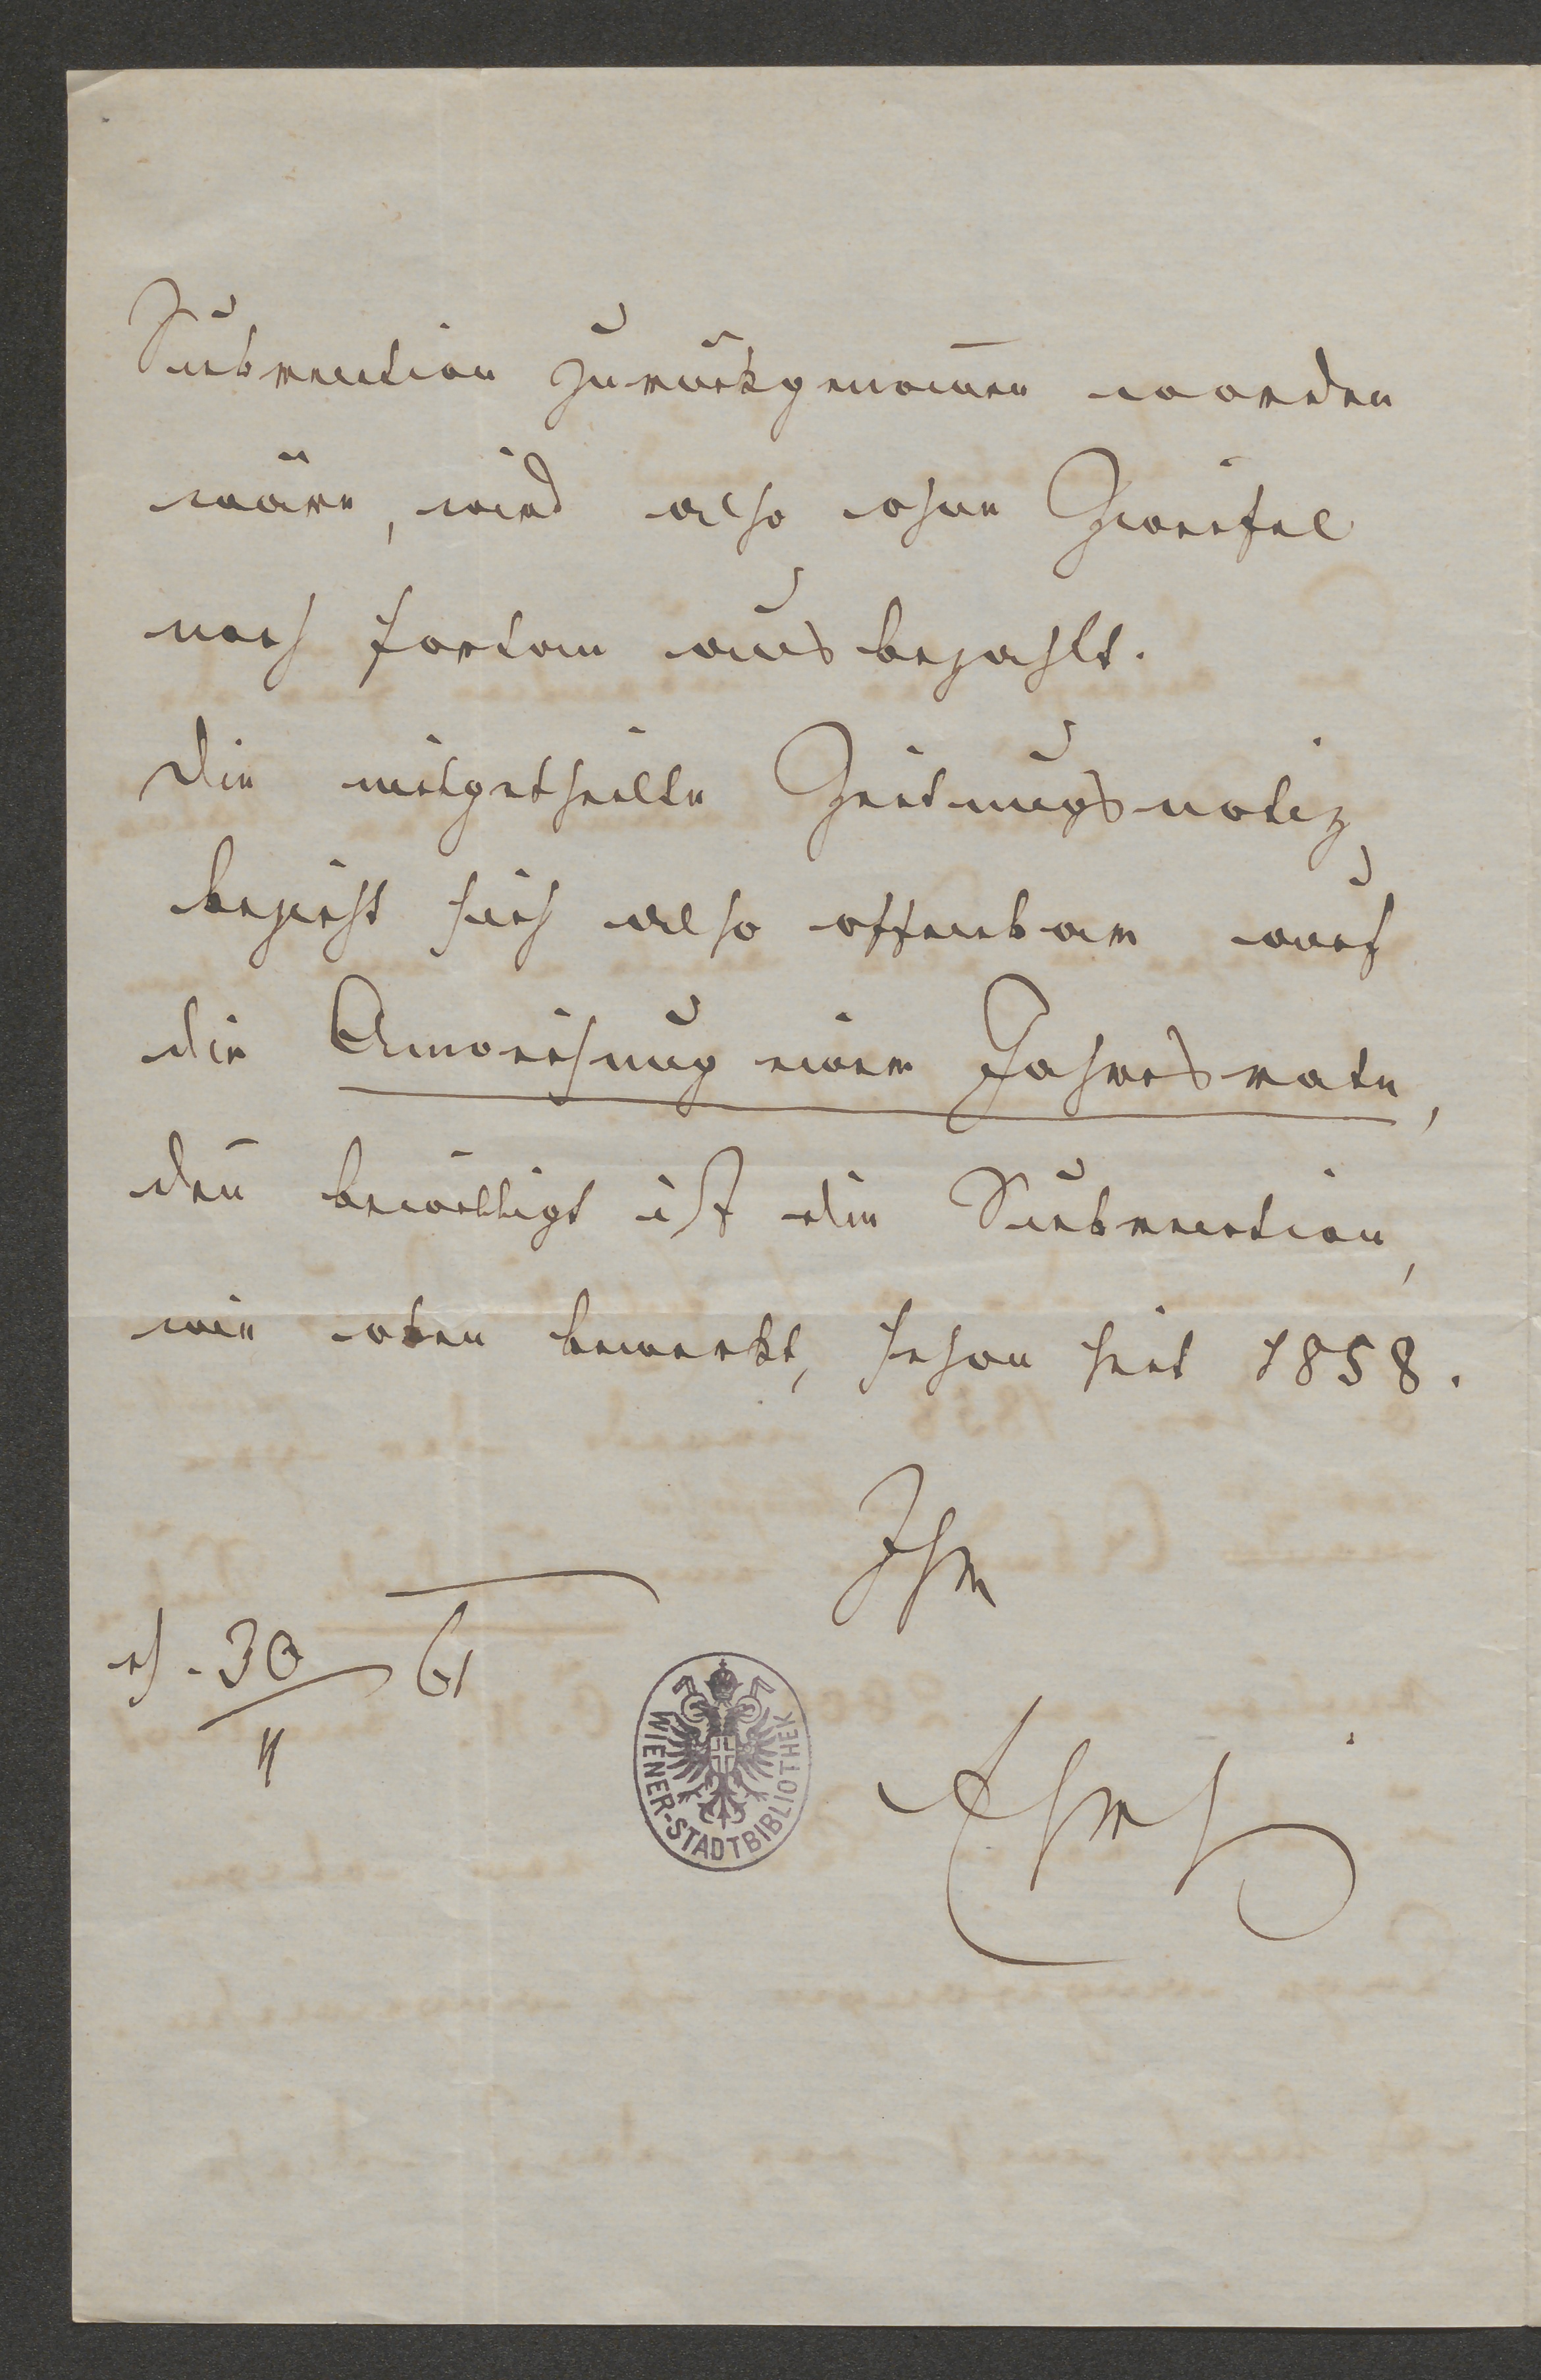 Subvention zurückgenom̄en worden
wäre, wird also ohne Zweifel
noch fortan ausbezahlt.
Die mitgetheilte Zeitungsnotiz
bezieht sich also offenbar auf
die Anweisung einer Jahresrate,
den̄ bewilligt ist die Subvention,
wie oben bemerkt, schon seit 1858.
Ihr
30/11 61
WIENER-STADTBIBLIOTHEK